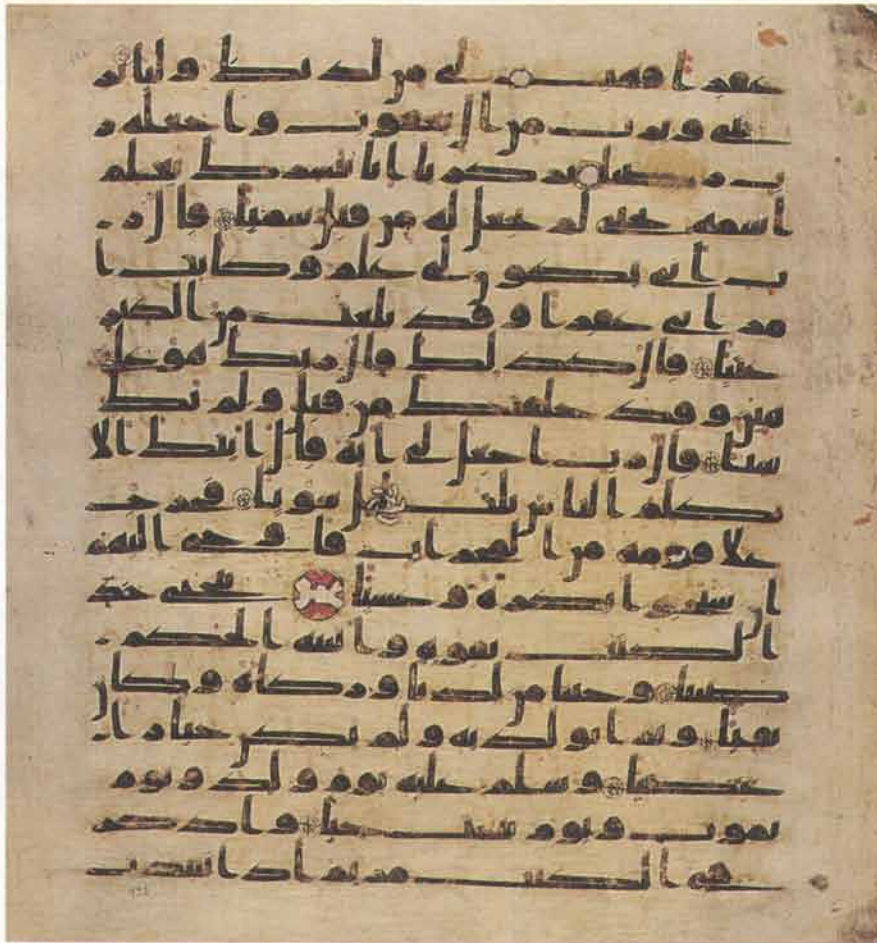 عقرا فهب لى من لدنك وليا ير
ثنى ويرث من ال يعقوب واجعله ر
ب رضيا يزكريا انا نبشرك بغلم
اسمه يحيى لم نجعل له من قبل سميا قال ر
ب انى يكون لى غلم وكانت ا
مراتى عقرا وقد بلغت من الكبر
عتيا قال كذلك قال ربك هو على
هين وقد خلقتك من قبل ولم تك
شيا قال رب اجعل لى اية قال ايتك الا
تكلم الناس ثلث ليل سويا فخرج
علا قومه من المحراب فاوحى اليهم
ان سبحوا بكرة وعشيا ييحيى خذ
الكتب بقوة واتينه الحكم
صبيا وحنانا من لدنا وزكاة وكان
تقيا وبرا بولديه ولم يكن جبارا
عصيا وسلم عليه يوم ولد ويوم
يموت ويوم يبعث حيا واذكر
فى الكتب مريم اذ انتبذت